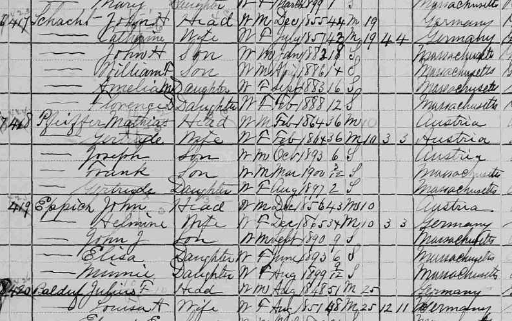 Mary Daughter W F March 1899 1 S Massachusetts
Schacht John H Head W M Dec 1855 44 M 19 Germany
— Catherine Wife W F July 1857 42 M 19 4 4 Germany
— John H Son W M Jan 1882 18 S Massachusetts
— William F Son W M 1886 14 S Massachusetts
— Amelia M Daughter W F Sept 1883 16 S Massachusetts
— Florence Daughter W F Feb 1888 12 S Massachusetts
Pfeiffer Mathias Head W M Feb 1864 36 M 10 Austria
— Gertrude Wife W F Feb 1864 36 M 10 3 3 Austria
— Joseph Son W M Oct 1893 6 S Austria
— Frank Son W M Mar 1900 S Massachusetts
— Gertrude Daughter W F Aug 1897 2 S Massachusetts
419 Eppich John Head W M 1856 43 M 10 Austria
— Helmine Wife W F Dec 1865 34 M 10 3 3 Germany
— John J Son W M Sept 1890 9 S Massachusetts
— Elisa Daughter W F June 1893 6 S Massachusetts
— Minnie Daughter W F Aug 1899 S Massachusetts
Balduf Julius F Head W M 1848 51 M 25 Germany
— Louisa H Wife W F Apr 1851 48 M 25 12 11 Germany